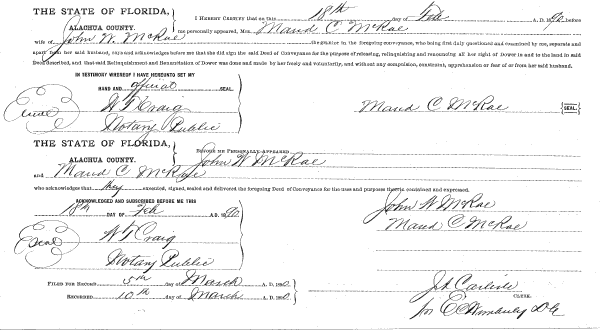 THE STATE OF FLORIDA,
ALACHUA COUNTY.
I HEREBY CERTIFY that on this 18th day of Feb A. D. 1890 before
me personally appeared, Mrs. Maud C McRae
wife of John W. McRae the grantor in the foregoing conveyance, who being first duly questioned and examined by me, separate and
apart from her said husband, did acknowledge before me that she did sign the said Deed of Conveyance for the purpose of releasing, relinquishing and renouncing all her right of Dower in and to the land in said
Deed described, and that said Relinquishment and Renunciation of Dower was done and made by her freely and voluntarily, and without any compulsion, constraint, apprehension or fear of or from her said husband.
IN TESTIMONY WHEREOF I HAVE HEREUNTO SET MY
HAND AND official SEAL.
Seal
W T Craig
Notary Public
Maud C McRae SEAL.
THE STATE OF FLORIDA,
ALACHUA COUNTY.
BEFORE ME PERSONALLY APPEARED John W McRae
and Maud C McRae
who acknowledge that they executed, signed, sealed and delivered the foregoing Deed of Conveyance for the uses and purposes therein contained and expressed.
ACKNOWLEDGED AND SUBSCRIBED BEFORE ME THIS
18th DAY OF Feb A. D. 1890
Seal
W T Craig
Notary Public
John W McRae
Maud C McRae
FILED FOR RECORD 5th day of March A. D. 1890.
RECORDED 10th day of March A. D. 1890.
Carlisle
CLERK.
E C Wimberly D C